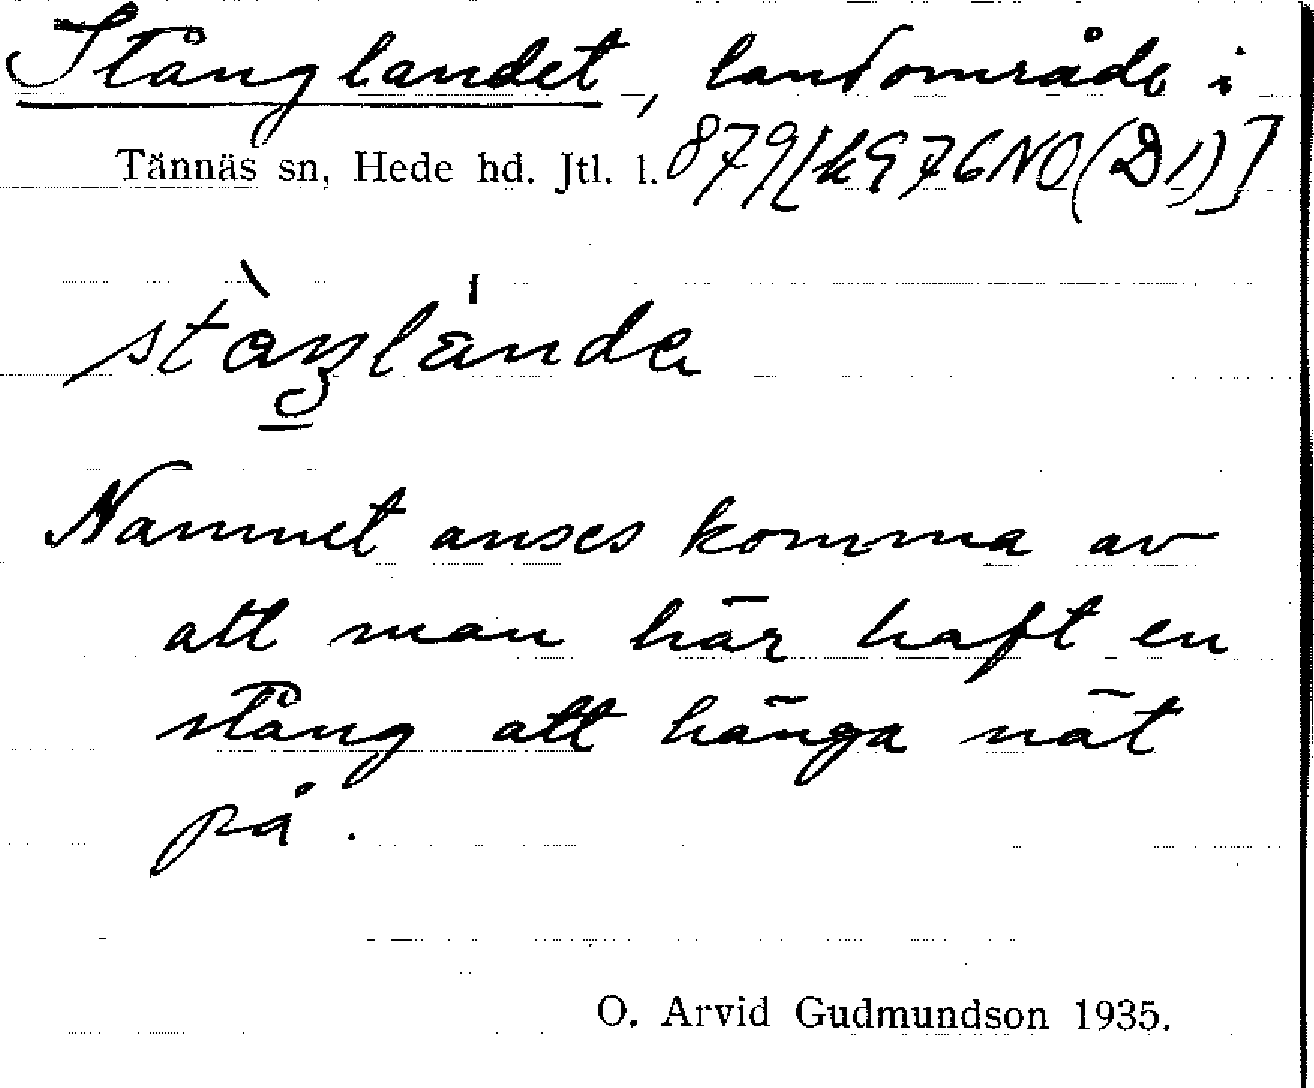 Stånglandet, landområde i
Tännäs sn, Hede hd. Jtl. l. 879[k976NO(D1)]
Namnet anses komma av
att man här haft en
stång att hänga nät
på.
O. Arvid Gudmundson 1935.